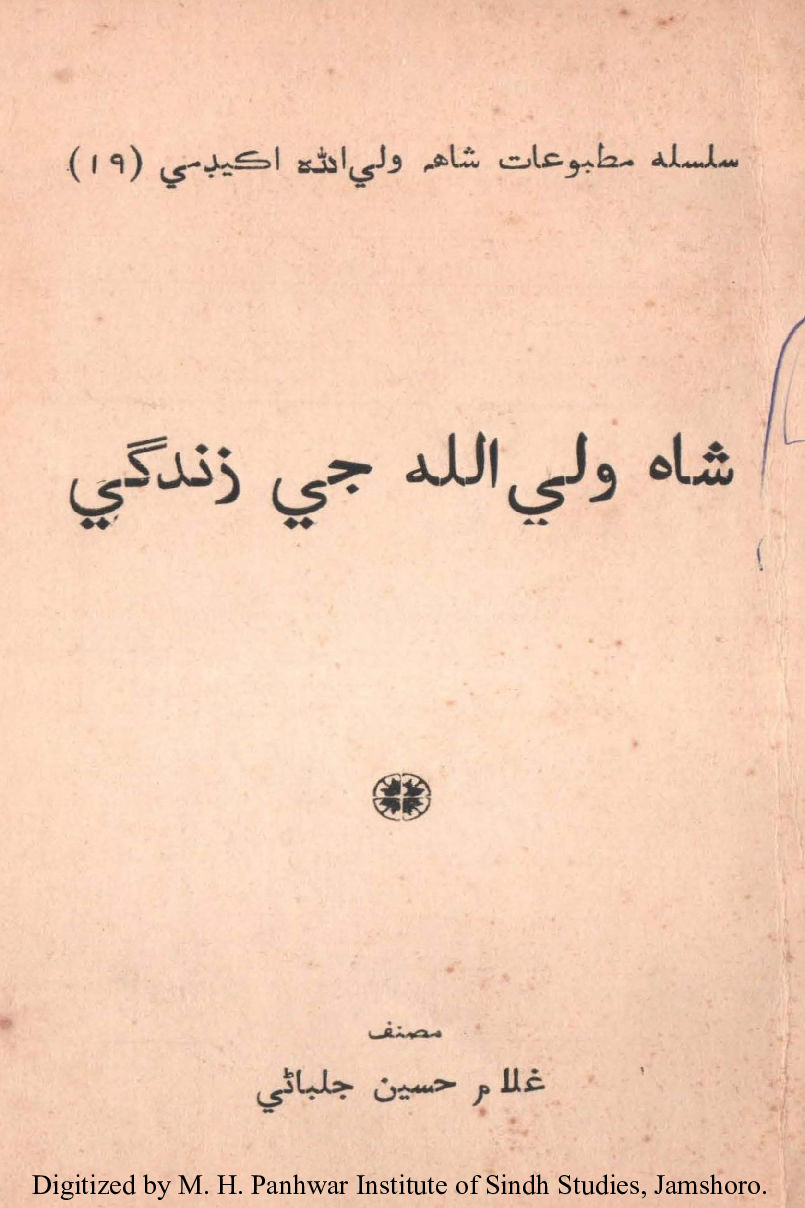 سلسله مطبوعات شاهہ ولي الله اڪيڊمي (١٩)
شاه ولي الله جي زندگي
مصنف
غلام حسين جلباڻي
Digitized by M. H. Panhwar Institute of Sindh Studies, Jamshoro.